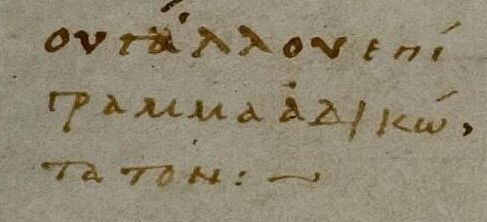 ον τάλλον επί
γραμμα ἀδικώ,
τατον: ~